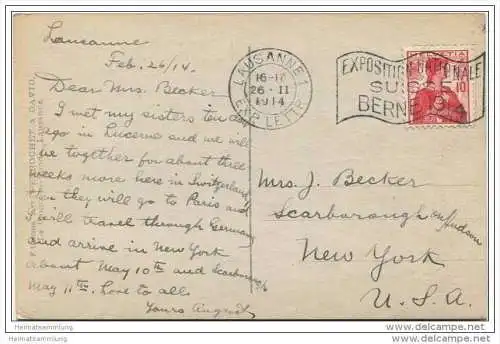 Lausanne
Feb. 26/14.
Dear Mrs. Becker
I met my sisters ten days
ago in Lucerne and we will
be together for about three
weeks more here in Switzerland
then they will go to Paris and
I will travel through Germany
and arrive in New York
about May 10th and Scarboro
May 11th. Love to all.
Yours August
LAUSANNE 1
16-17
26 - II
1914
EXP. LETTR.
EXPOSITION NATIONALE
SUISSE
BERNE 1914
HELVETIA
10
Mrs. J. Becker
Scarborough on/Hudson
New York
U. S. A.
Heimatsammlung
Heimatsammlung
Heimatsammlung
Heimatsammlung